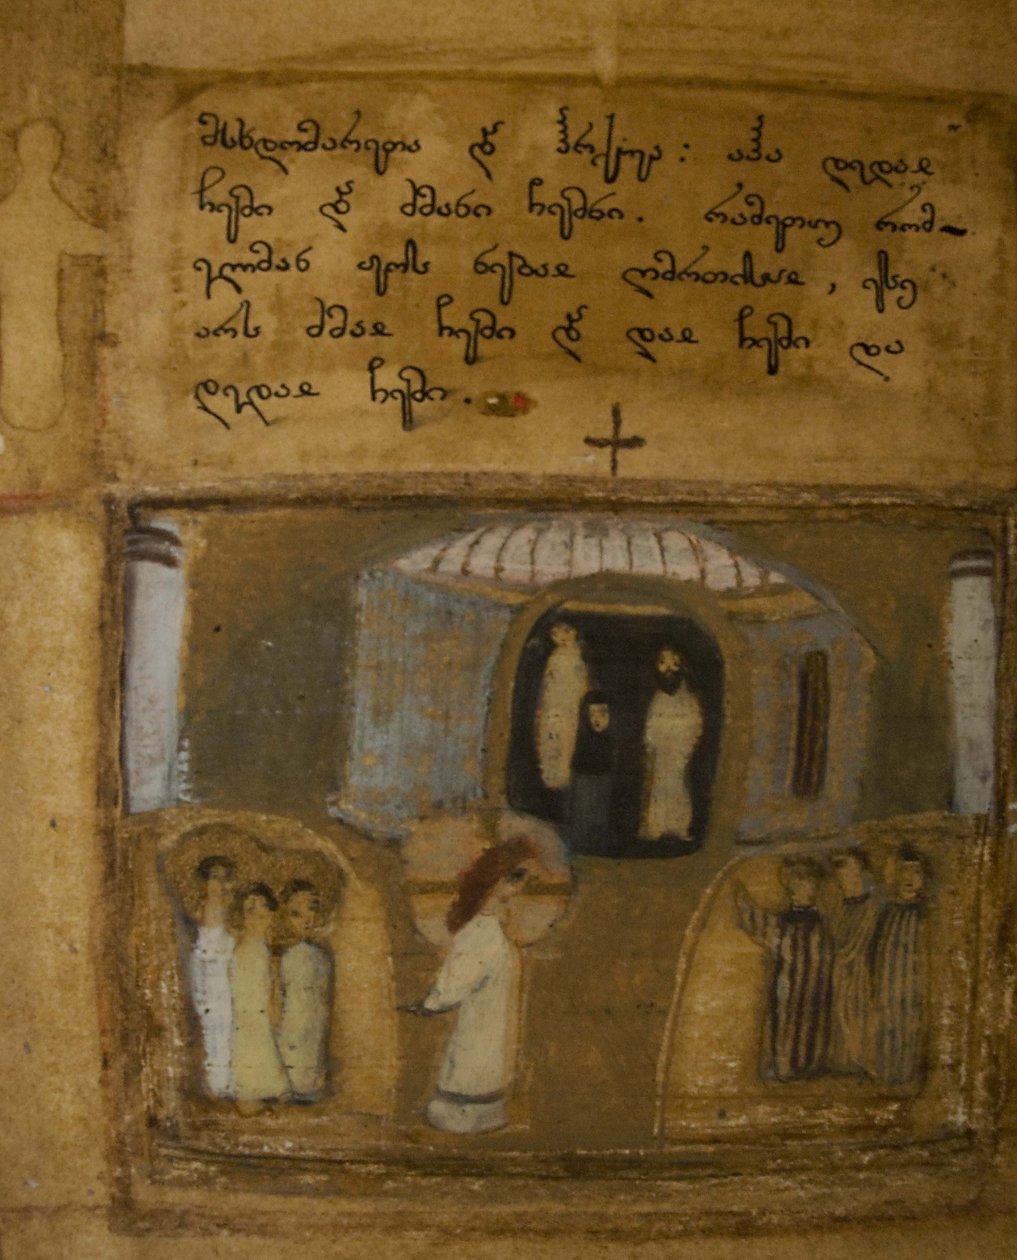 მსხდომარეთა და ჰრქუა : აჰა დედაჲ
ჩემი და ძმანი ჩემნი. რამეთუ რომ-
ელმან ყოს ნებაჲ ღმრთისაჲ, ესე
არს ძმაჲ ჩემი და დაჲ ჩემი და
დედაჲ ჩემი.